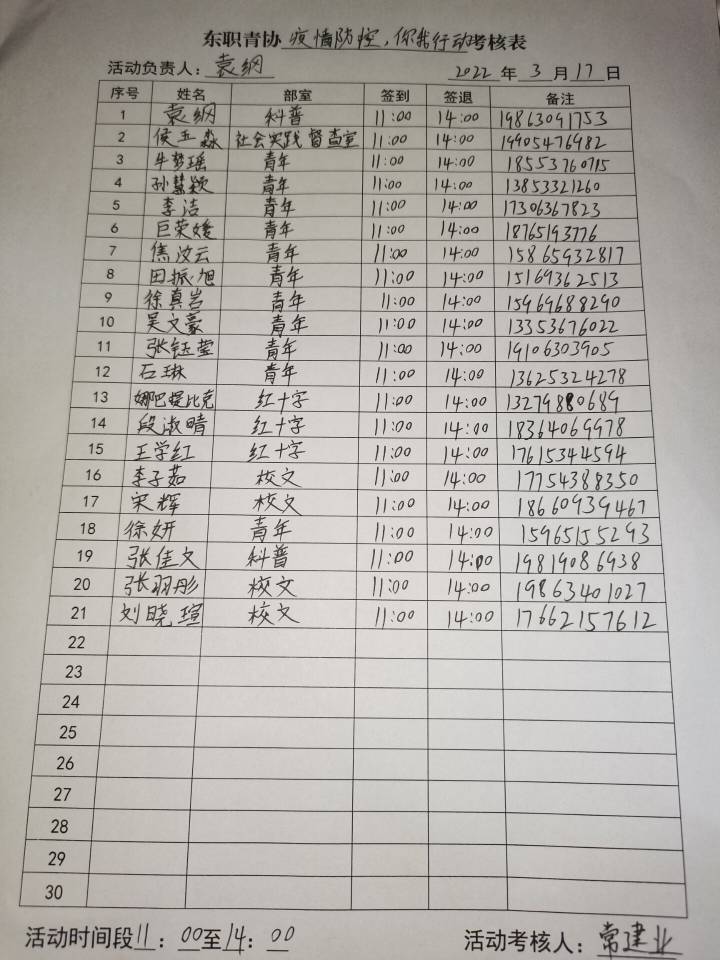 东职青协 疫情防控，你我行动考核表
活动负责人：袁纲 2022 年 3 月 17 日
序号 姓名 部室 签到 签退 备注
1 袁纲 科普 11:00 14:00 19863091753
2 侯玉淼 社会实践 督查室 11:00 14:00 19905476982
3 牛梦瑶 青年 11:00 14:00 18553760715
4 孙慧颖 青年 11:00 14:00 13853321260
5 李洁 青年 11:00 14:00 17306367823
6 巨荣媛 青年 11:00 14:00 18765193776
7 焦汶云 青年 11:00 14:00 15865932817
8 田振旭 青年 11:00 14:00 15169362513
9 徐真岩 青年 11:00 14:00 15969688290
10 吴文豪 青年 11:00 14:00 13353676022
11 张钰莹 青年 11:00 14:00 19106303905
12 石琳 青年 11:00 14:00 13625324278
13 娜巴提比克 红十字 11:00 14:00 13279880689
14 段淑晴 红十字 11:00 14:00 18364069978
15 王学红 红十字 11:00 14:00 17615344594
16 李子茹 校文 11:00 14:00 17754388350
17 宋辉 校文 11:00 14:00 18660939467
18 徐妍 青年 11:00 14:00 15965155293
19 张佳文 科普 11:00 14:00 19819086938
20 张羽彤 校文 11:00 14:00 19863401027
21 刘晓瑄 校文 11:00 14:00 17662157612
22
23
24
25
26
27
28
29
30
活动时间段11：00至14：00 活动考核人：常建业